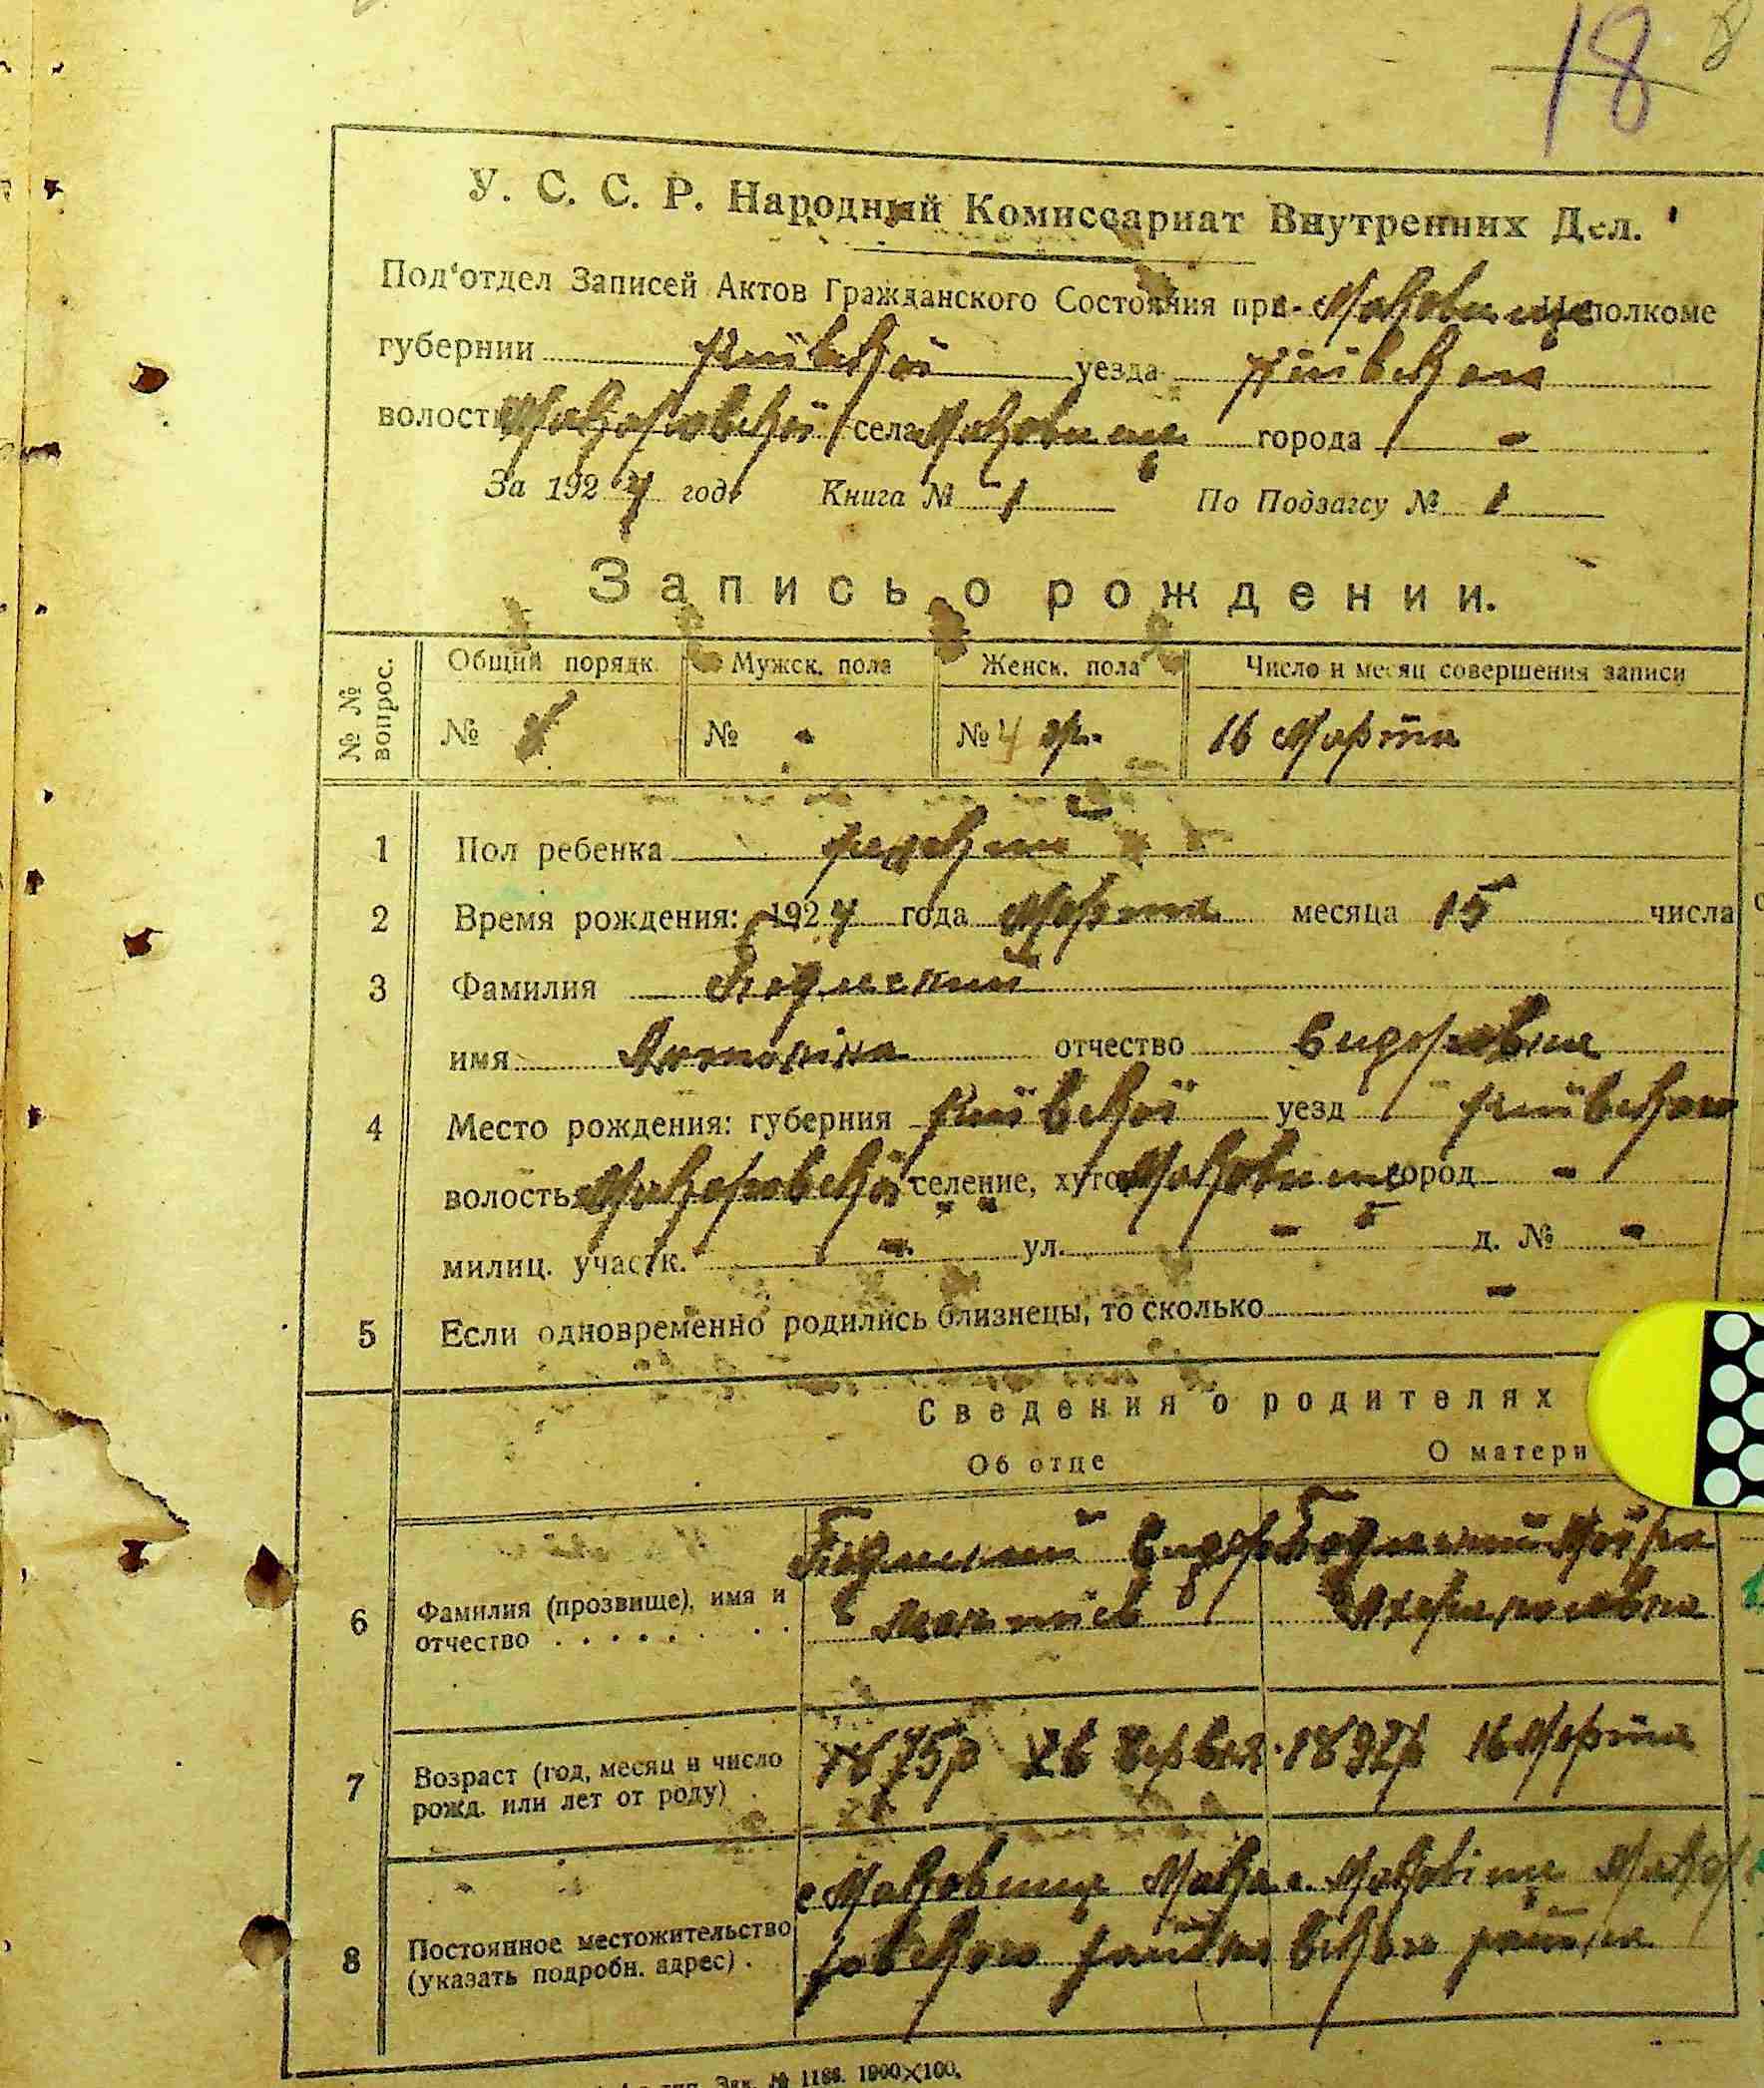 18
У. С. С. Р. Народный Комиссариат Внутренних Дел.
Под'отдел Записей Актов Гражданского Состояния при Маковище Исполкоме
губернии Київской уезда Київского
волости Макаровской села Маковище города -
За 1924 год Книга № 1 По Подзагсу № 1
Запись о рождении.
№ № вопрос. Общий порядк. Мужск. пола Женск. пола Число и месяц совершения записи
№ № - № 4 16 Марта
1 Пол ребенка
2 Время рождения: 1924 года Марта месяца 15 числа
3 Фамилия
имя отчество
4 Место рождения: губерния Київской уезд Київского
волость Макаровской селение, хутор Маковище город -
милиц. участк. - ул. - д. № -
5 Если одновременно родились близнецы, то сколько -
Сведения о родителях
Об отце О матери
6 Фамилия (прозвище), имя и
отчество
7 Возраст (год, месяц и число 1875р 26 Червня 1892р 16 Марта
рожд. или лет от роду)
с Маковище Мака с. Маковіще Макар
8 Постоянное местожительство ровского района вского района
(указать подробн. адрес) .
Зак. № 1186. 1000×100.